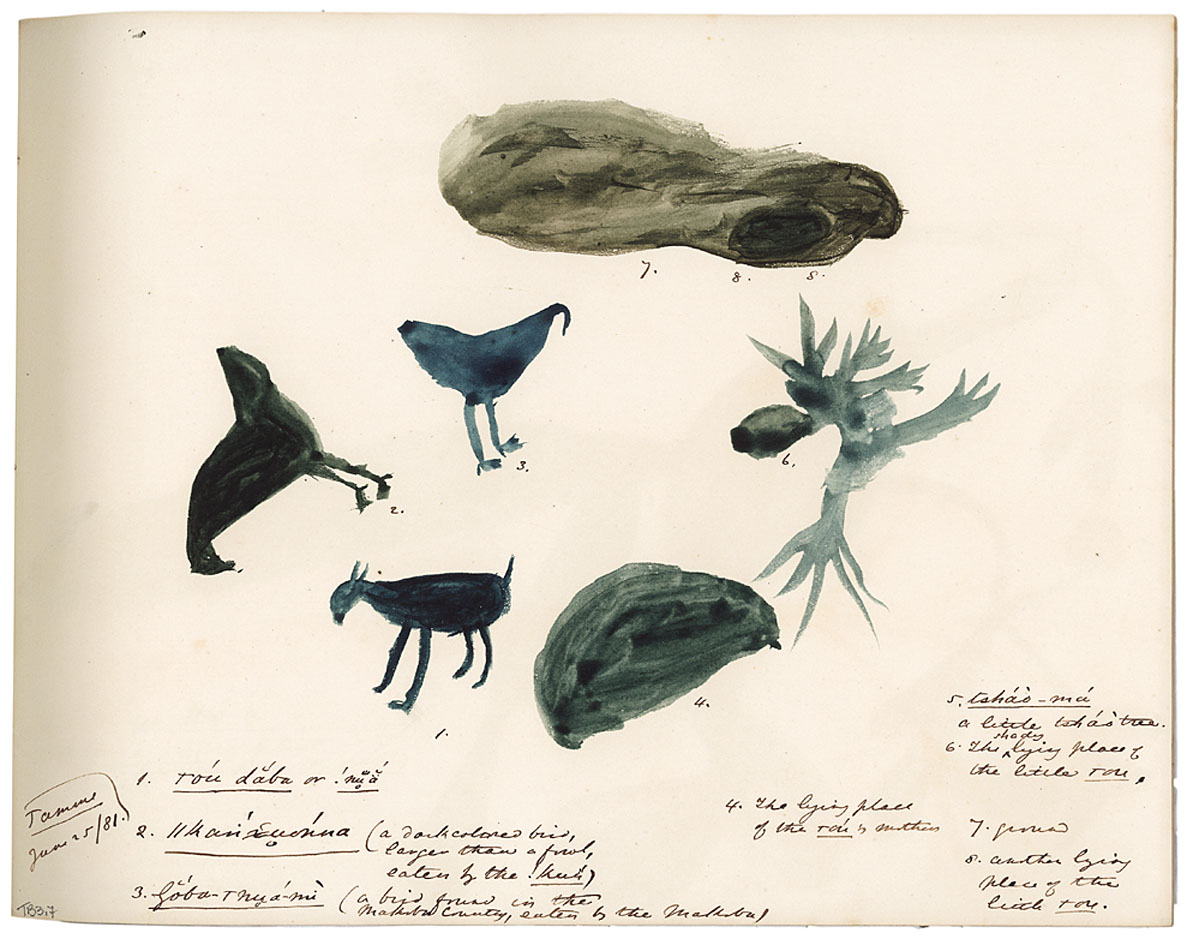 7. 8. 8.
3.
6.
2.
4.
1.
5. tsháò-má
a little tsháò tree.
shady
6. The lying place of
the little τόu.
1. τόu dǎba or !nṵ̌ǎ́
4. The lying place
of the τόu's mother
7. ground
8. another lying
place of the
little τόu.
Tamme
June 25/81.
2.
(a dark colored bird,
larger than a fowl,
eaten by the !kuń)
3.
(a bird found in the
Makoba Country, eaten by the Makoba)
TB3.7